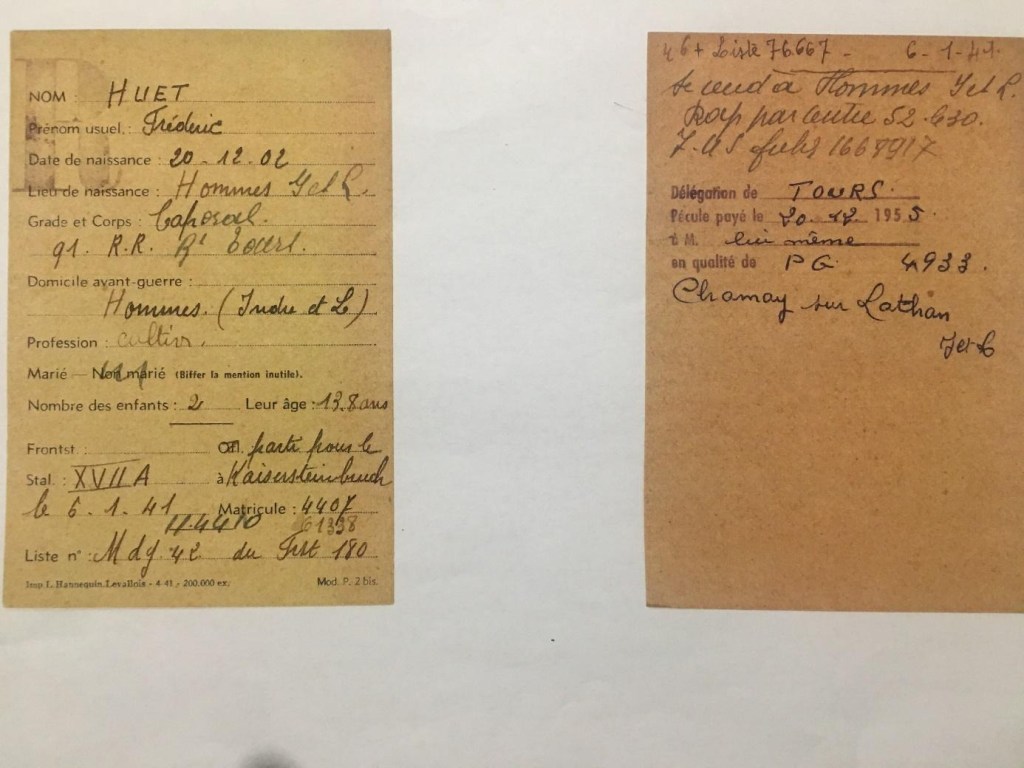 NOM HUET
Prénom usuel : Fréderic
Date de naissance : 20-12.02
Lieu de naissance : Hommes I et L.
Grade et Corps : Caporal.
91. R.R. Rt Tours.
Domicile avant-guerre :
Hommes. (Indre et L)
Profession : cultivr.
Marié — Non marié (Biffer la mention inutile).
Nombre des enfants : 2 Leur âge : 13.8 ans
Frontst. : parti pour le
Stal. : XVII A à Kaisersteinbruch
le 6-1-41 Matricule : 4407
61338
Liste n° : Mdg. 42 du 180
Imp L. Hannequin. Levallois - 4-41 - 200.000 ex. Mod. P. 2 bis.
46 + Liste 76.667 - 6-1-41.
se rend à Hommes I et L.
Rap par centre 52.630.
1668917
Délégation de TOURS.
Pécule payé le 20.12. 1955.
à M. lui même
en qualité de PG 4933.
Channay sur Lathan
I et L